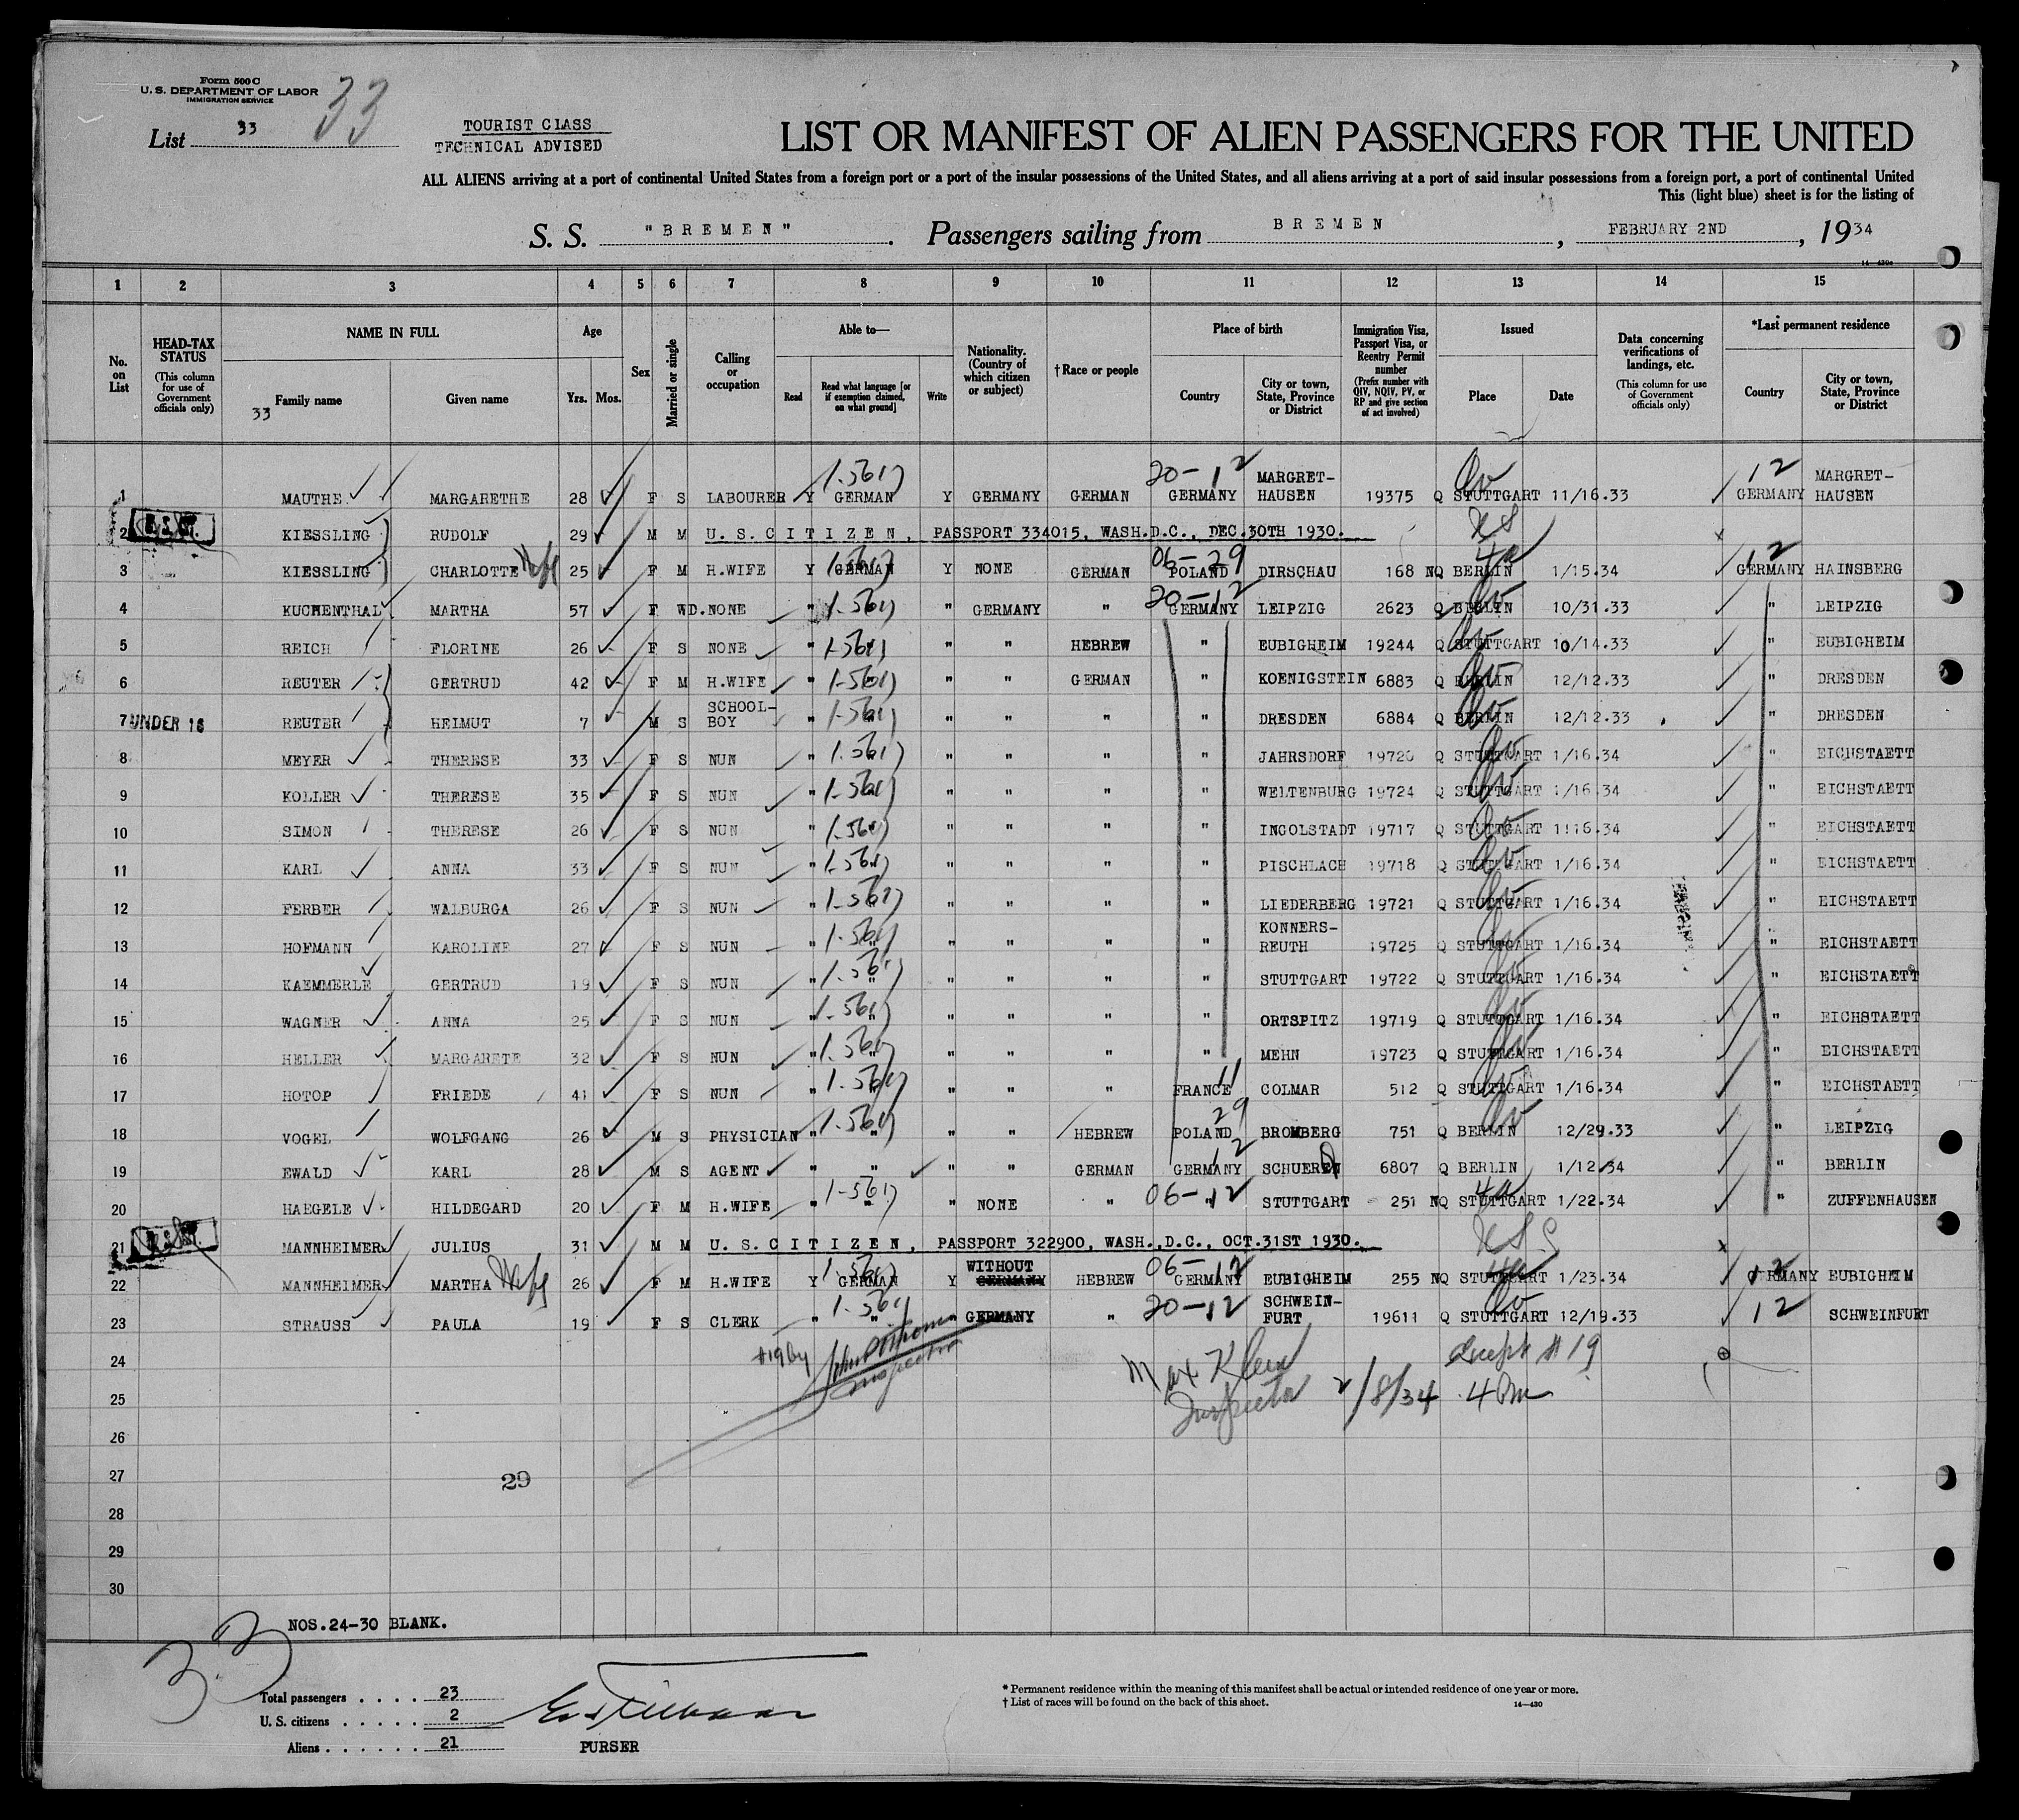 Form 500 C
U. S. DEPARTMENT OF LABOR
IMMIGRATION SERVICE
33
List 33
TOURIST CLASS
TECHNICAL ADVISED
LIST OR MANIFEST OF ALIEN PASSENGERS FOR THE UNITED
ALL ALIENS arriving at a port of continental United States from a foreign port or a port of the insular possessions of the United States, and all aliens arriving at a port of said insular possessions from a foreign port, a port of continental United
This (light blue) sheet is for the listing of
S. S. "BREMEN". Passengers sailing from BREMEN, FEBRUARY 2ND, 1934
14—430c
1 2 3 4 5 6 7 8 9 10 11 12 13 14 15
No. on List
HEAD-TAX STATUS (This column for use of Government officials only)
NAME IN FULL
33 Family name
Given name
Age
Yrs. Mos.
Sex
Married or single
Calling or occupation
Able to—
Read
Read what language [or if exemption claimed, on what ground]
Write
Nationality. (Country of which citizen or subject)
†Race or people
Place of birth
Country
City or town, State, Province or District
Immigration Visa, Passport Visa, or Reentry Permit number (Prefix number with QIV, NQIV, PV, or RP and give section of act involved)
Issued
Place
Date
Data concerning verifications of landings, etc. (This column for use of Government officials only)
*Last permanent residence
Country
City or town, State, Province or District
1 MAUTHE MARGARETHE 28 F S LABOURER Y GERMAN Y GERMANY GERMAN 20-12 GERMANY MARGRET-HAUSEN 19375 Q STUTTGART 11/16.33 12 GERMANY MARGRET-HAUSEN
2 KIESSLING RUDOLF 29 M M U.S.CITIZEN, PASSPORT 334015, WASH.D.C., DEC.30TH 1930.
3 KIESSLING CHARLOTTE 25 F M H.WIFE Y GERMAN Y NONE GERMAN 06-29 POLAND DIRSCHAU 168 NQ BERLIN 1/15.34 12 GERMANY HAINSBERG
4 KUCHENTHAL MARTHA 57 F WD. NONE " " GERMANY " 20-12 GERMANY LEIPZIG 2623 Q BERLIN 10/31.33 " LEIPZIG
5 REICH FLORINE 26 F S NONE " " " " HEBREW " EUBIGHEIM 19244 Q STUTTGART 10/14.33 " EUBIGHEIM
6 REUTER GERTRUD 42 F M H.WIFE " " " " GERMAN " KOENIGSTEIN 6883 Q BERLIN 12/12.33 " DRESDEN
7 UNDER 16 REUTER HELMUT 7 M S SCHOOL-BOY " " " " " " DRESDEN 6884 Q BERLIN 12/12.33 " DRESDEN
8 MEYER THERESE 33 F S NUN " " " " " " JAHRSDORF 19720 Q STUTTGART 1/16.34 " EICHSTAETT
9 KOLLER THERESE 35 F S NUN " " " " " " WELTENBURG 19724 Q STUTTGART 1/16.34 " EICHSTAETT
10 SIMON THERESE 26 F S NUN " " " " " " INGOLSTADT 19717 Q STUTTGART 1116.34 " EICHSTAETT
11 KARL ANNA 33 F S NUN " " " " " " PISCHLACH 19718 Q STUTTGART 1/16.34 " EICHSTAETT
12 FERBER WALBURGA 26 F S NUN " " " " " " LIEDERBERG 19721 Q STUTTGART 1/16.34 " EICHSTAETT
13 HOFMANN KAROLINE 27 F S NUN " " " " " " KONNERS-REUTH 19725 Q STUTTGART 1/16.34 " EICHSTAETT
14 KAEMMERLE GERTRUD 19 F S NUN " " " " " " STUTTGART 19722 Q STUTTGART 1/16.34 " EICHSTAETT
15 WAGNER ANNA 25 F S NUN " " " " " " ORTSPITZ 19719 Q STUTTGART 1/16.34 " EICHSTAETT
16 HELLER MARGARETE 32 F S NUN " " " " " " MEHN 19723 Q STUTTGART 1/16.34 " EICHSTAETT
17 HOTOP FRIEDE 41 F S NUN " " " " " 11 FRANCE COLMAR 512 Q STUTTGART 1/16.34 " EICHSTAETT
18 VOGEL WOLFGANG 26 M S PHYSICIAN " " " " HEBREW 29 POLAND BROMBERG 751 Q BERLIN 12/29.33 " LEIPZIG
19 EWALD KARL 28 M S AGENT " " " " GERMAN 12 GERMANY SCHUEREN 6807 Q BERLIN 1/12.34 " BERLIN
20 HAEGELE HILDEGARD 20 F M H.WIFE " " " NONE " 06-12 " STUTTGART 251 NQ STUTTGART 1/22.34 " ZUFFENHAUSEN
21 MANNHEIMER JULIUS 31 M M U.S.CITIZEN, PASSPORT 322900, WASH.,D.C., OCT.31ST 1930.
22 MANNHEIMER MARTHA 26 F M H.WIFE Y GERMAN Y WITHOUT GERMANY HEBREW 06-12 GERMANY EUBIGHEIM 255 NQ STUTTGART 1/23.34 GERMANY EUBIGHEIM
23 STRAUSS PAULA 19 F S CLERK " " " GERMANY " 20-12 SCHWEIN-FURT 19611 Q STUTTGART 12/19.33 12 SCHWEINFURT
24
#19 by Inspector
Max Klein Except #19
25
Inspector 2/8/34 4 Pm
26
27 29
28
29
30
NOS.24-30 BLANK.
33
Total passengers . . . . 23
U. S. citizens . . . . . 2
Aliens . . . . . . 21
PURSER
* Permanent residence within the meaning of this manifest shall be actual or intended residence of one year or more.
† List of races will be found on the back of this sheet.
14—430